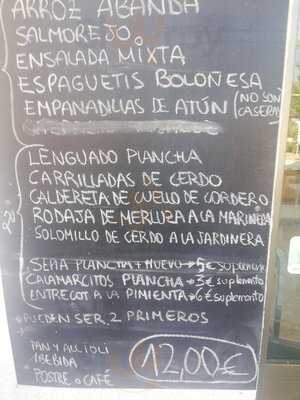 ARROZ ABANDA
SALMOREJO.
ENSALADA MIXTA
ESPAGUETIS BOLOÑESA
EMPANADILLAS DE ATÚN (NO SON CASERAS)
2º
LENGUADO PLANCHA
CARRILLADAS DE CERDO
CALDERETA DE CUELLO DE CORDERO
RODAJA DE MERLUZA A LA MARINERA
SOLOMILLO DE CERDO A LA JARDINERA
SEPIA PLANCHA + HUEVO → 5€ suplemento
CALAMARCITOS PLANCHA → 3€ suplemento
ENTRECOT A LA PIMIENTA → 6€ suplemento
PUEDEN SER 2 PRIMEROS
PAN Y ALLIOLI
1 BEBIDA
POSTRE o CAFÉ
12,00€